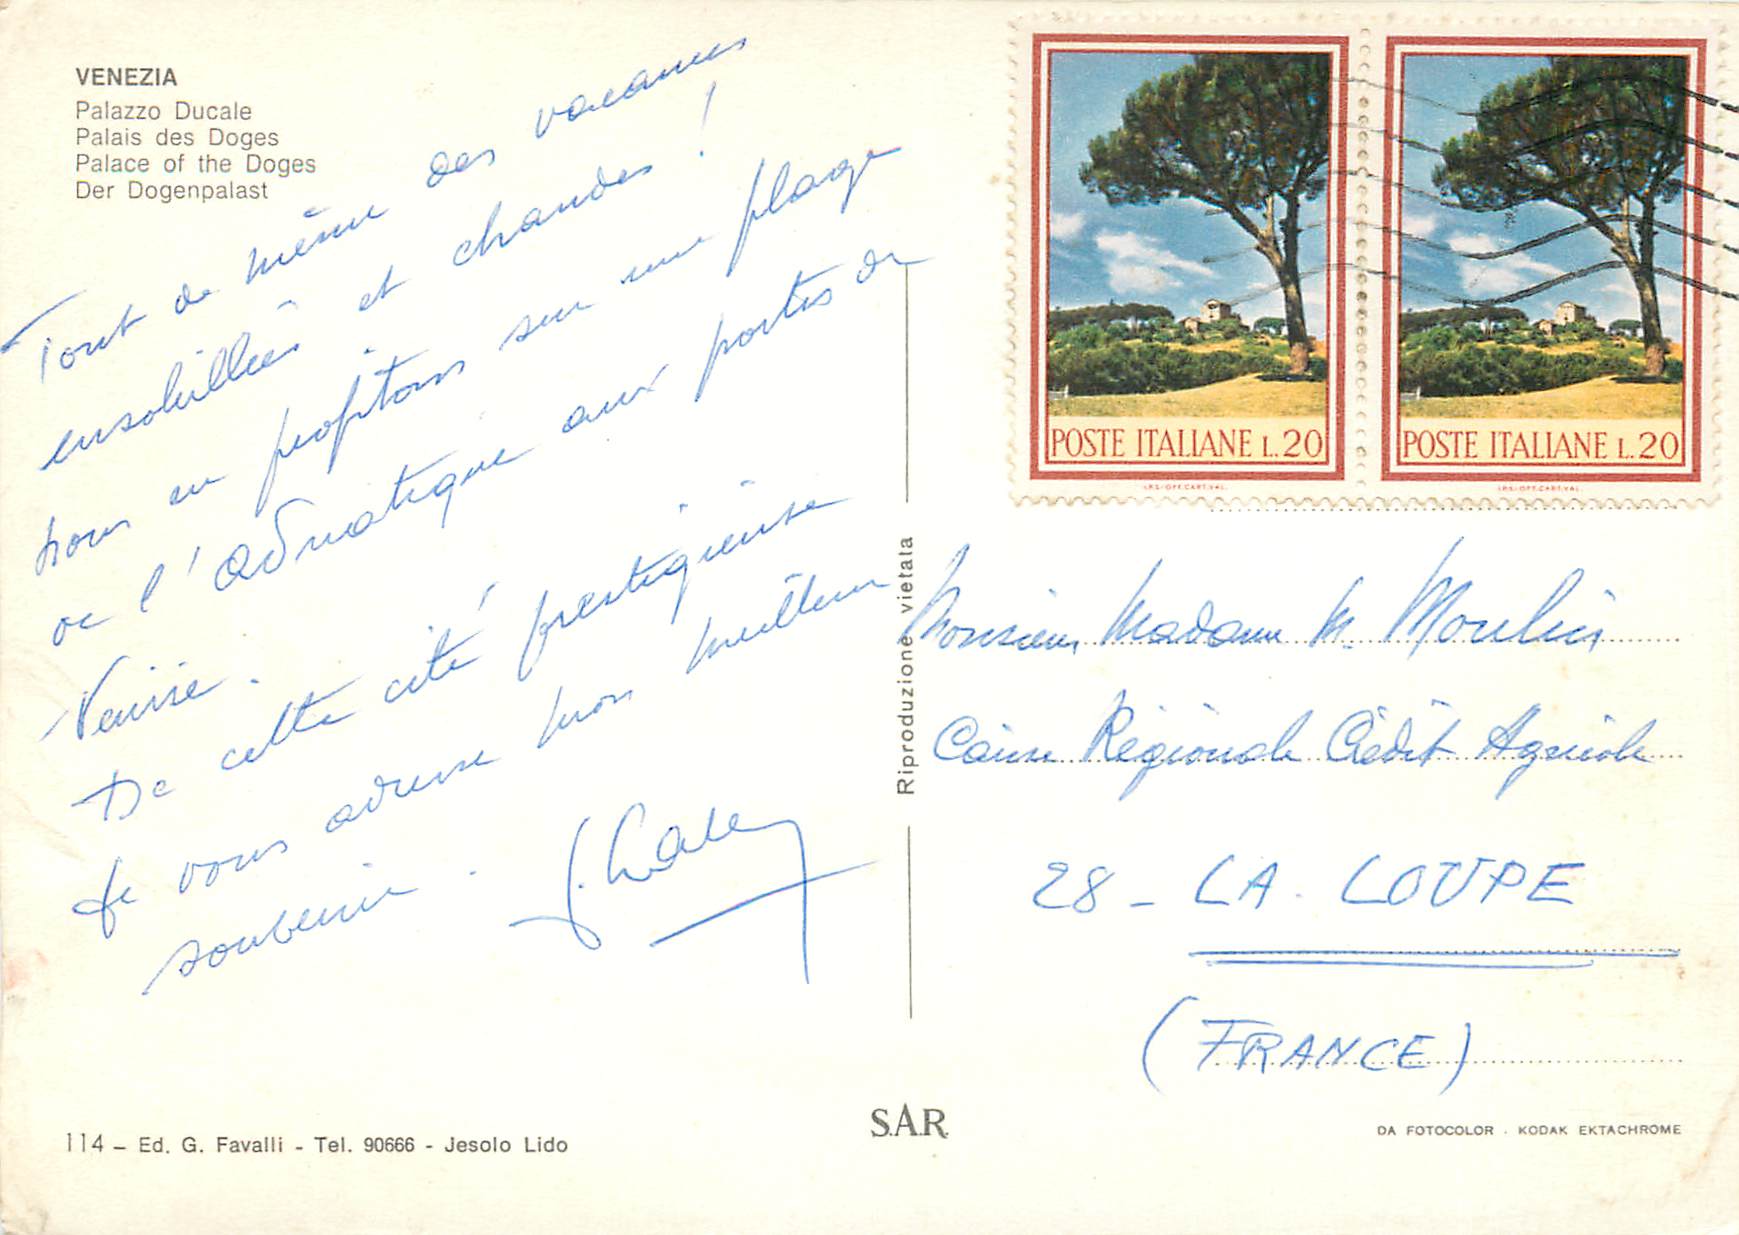 VENEZIA
Palazzo Ducale
Palais des Doges
Palace of the Doges
Der Dogenpalast
Tout de même des vacances
ensoleillées et chaudes !
nous en profitons sur une plage
de l'Adriatique aux portes de
Venise.
De cette cité prestigieuse
Je vous adresse mon meilleur
souvenir.
POSTE ITALIANE L.20
I.P.S.-OFF.CART.VAL.
POSTE ITALIANE L.20
I.P.S.-OFF.CART.VAL.
Riproduzione vietata
Monsieur Madame M. Moulin
Caisse Régionale Crédit Agricole
28 - LA LOUPE
(FRANCE)
114 - Ed. G. Favalli - Tel. 90666 - Jesolo Lido
S.A.R.
DA FOTOCOLOR - KODAK EKTACHROME